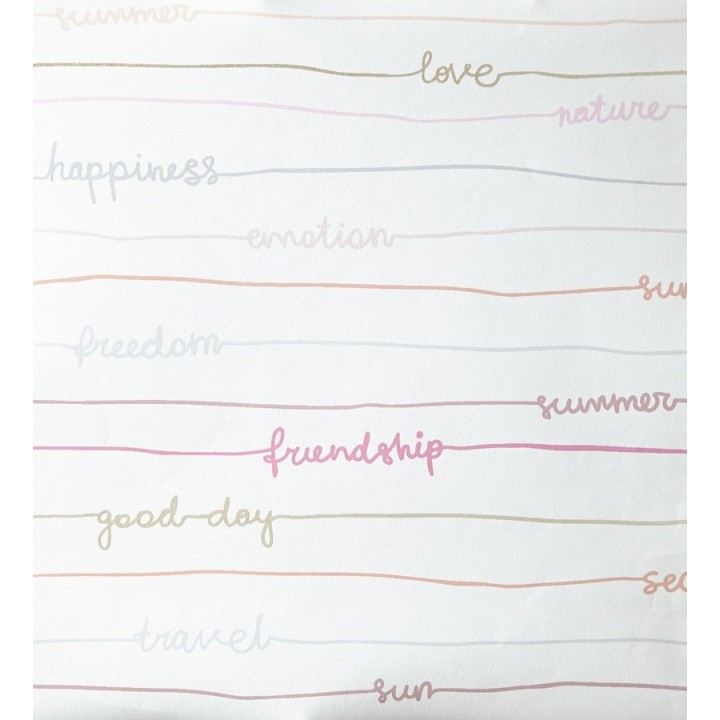 summer
love
nature
happiness
emotion
sun
freedom
summer
friendship
good day
travel
sun